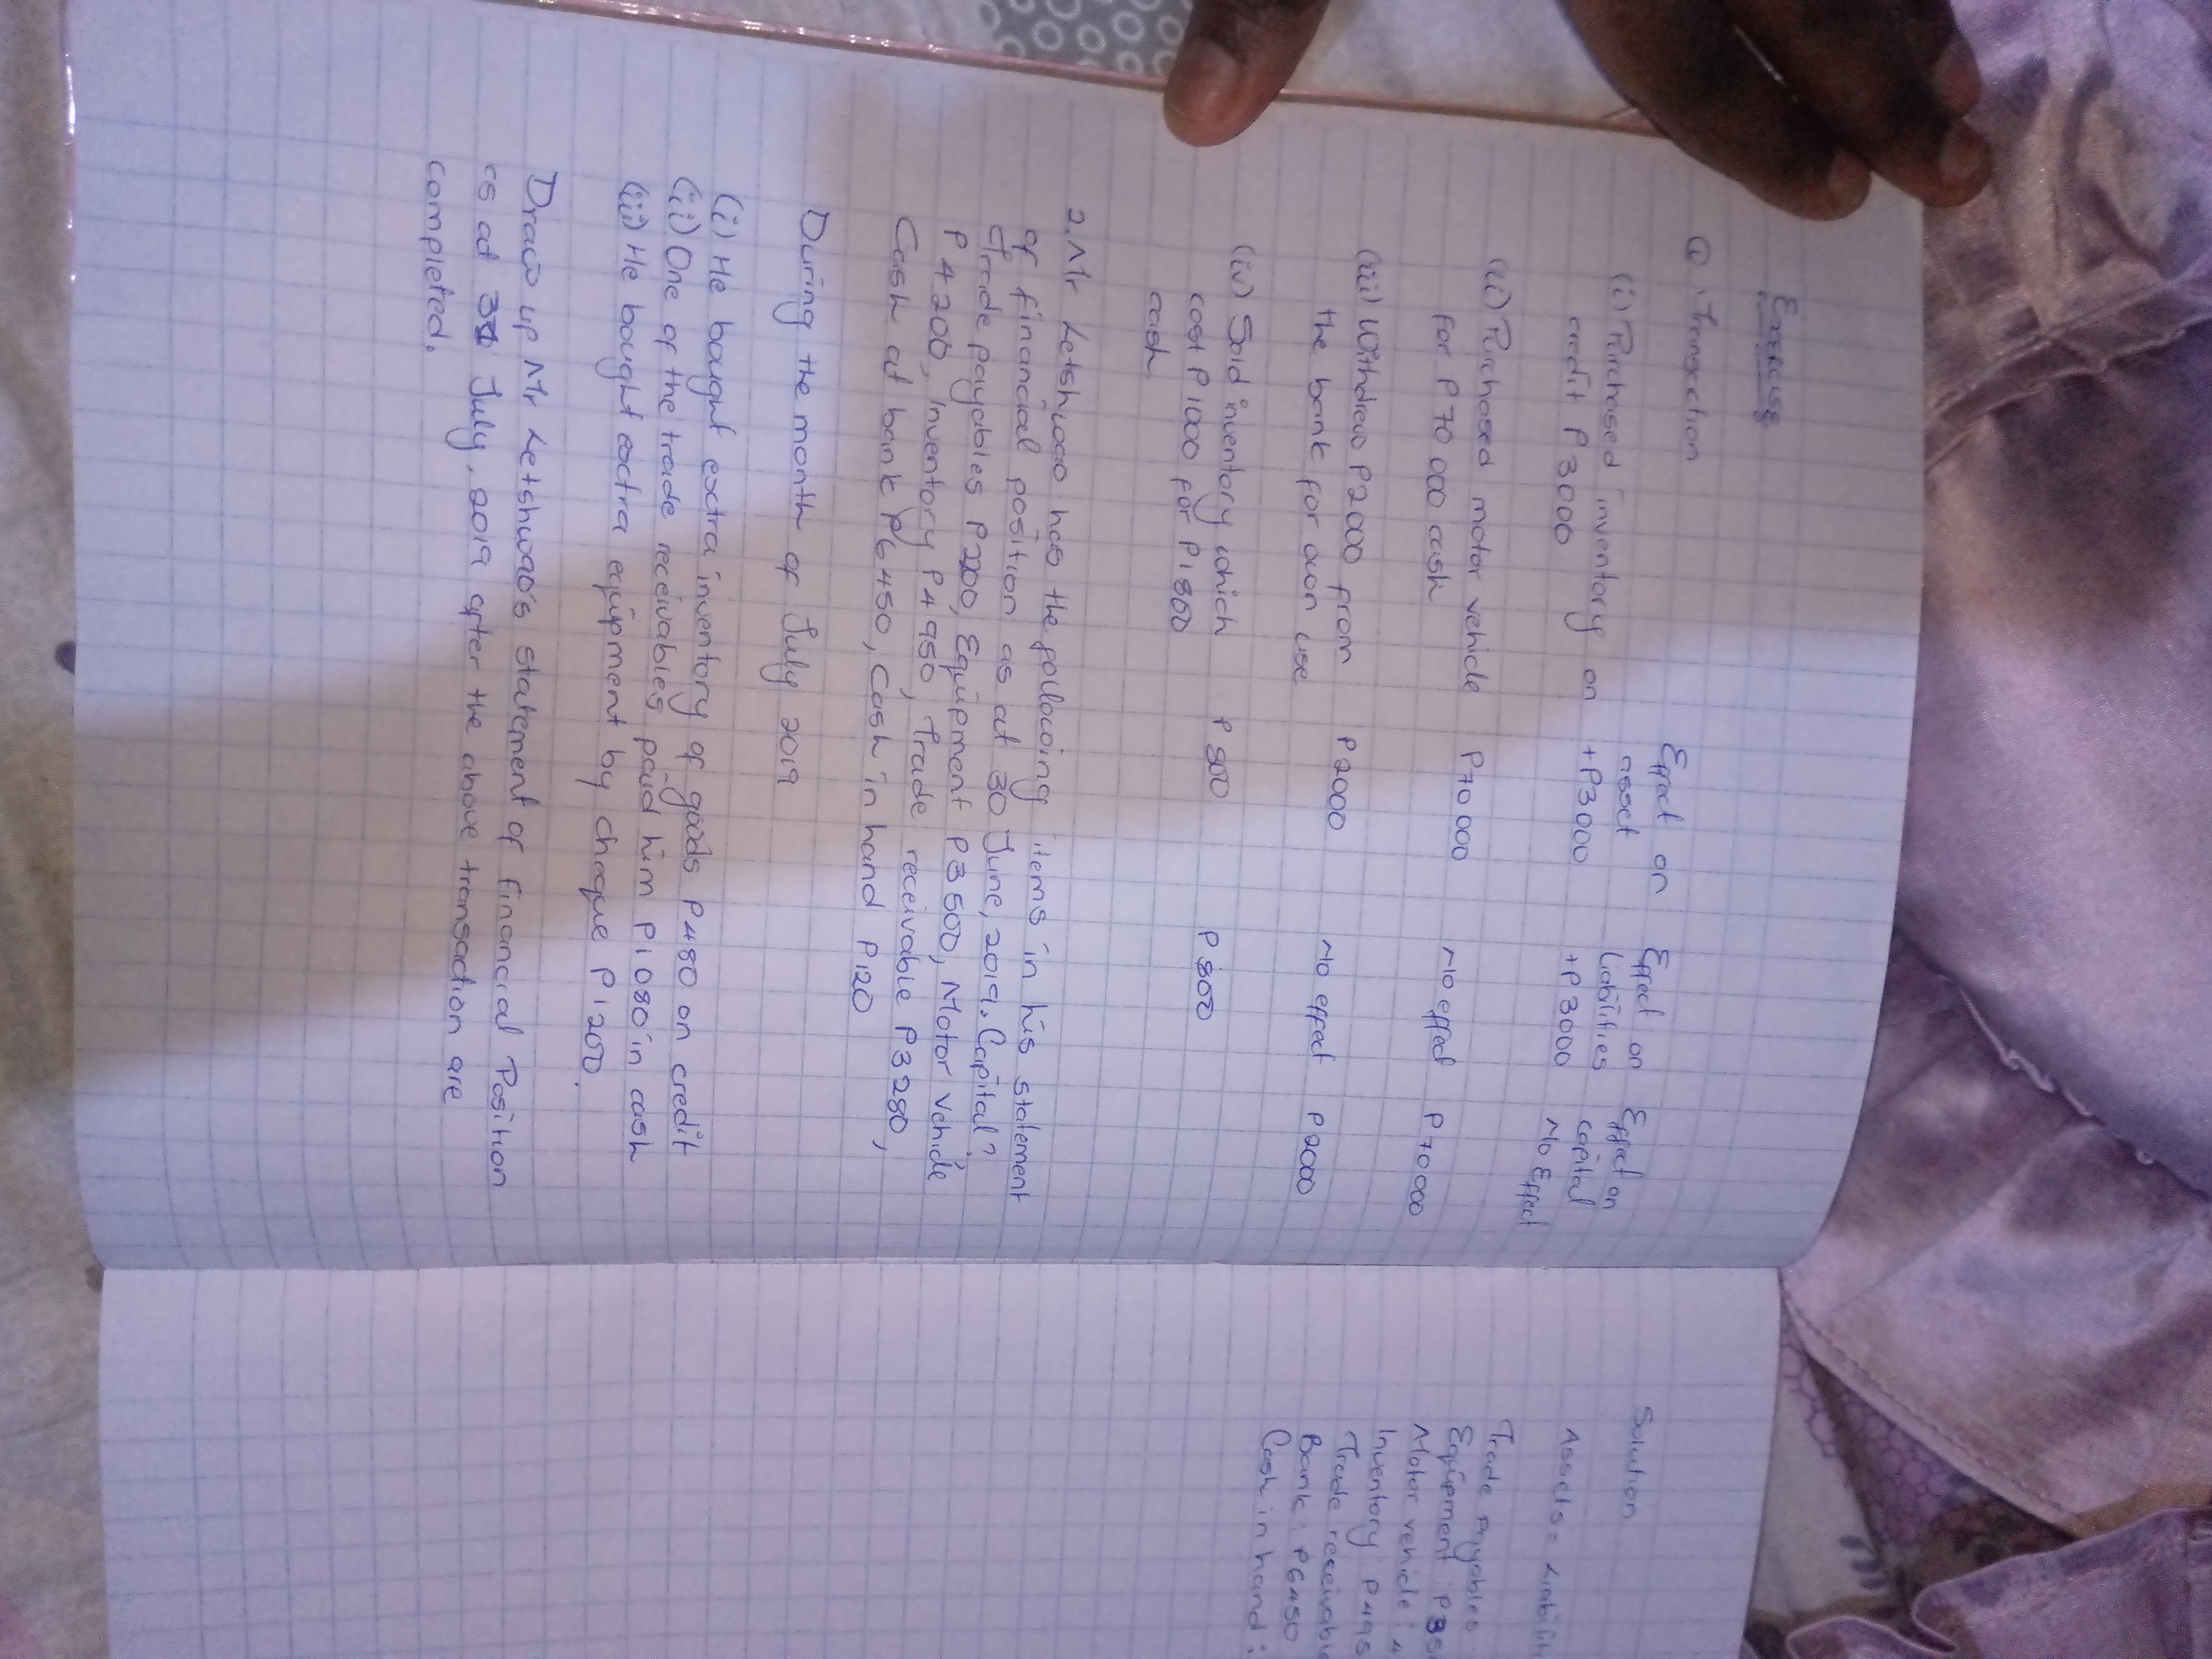 Exercise
① Transaction
Effect on asset
Effect on Liabilities
Effect on capital
(i) Purchased inventory on credit P3000
+P3000
+P3000
No Effect
(ii) Purchased motor vehicle for P70 000 cash
P70 000
No effect
P70000
(iii) Withdrew P2000 from the bank for own use
P2000
No effect
P2000
(iv) Sold inventory which cost P1000 for P1800 cash.
P 800
P 800
2. Mr Letshwao has the following items in his statement
of financial position as at 30 June, 2019. Capital?
Trade payables P2200, Equipment P3500, Motor vehicle
P4200, Inventory P4950, Trade receivable P3280,
Cash at bank P6450, Cash in hand P120
During the month of July 2019
(i) He bought extra inventory of goods P480 on credit
(ii) One of the trade receivables paid him P1080 in cash
(iii) He bought extra equipment by cheque P1200.
Draw up Mr Letshwao's statement of financial Position
as at 31 July, 2019 after the above transaction are
completed.
Solution
Assets = Liabilit
Trade payables
Equipment P35
Motor vehicle : 4
Inventory P495
Trade receivabl
Bank : P6450
Cash in hand :